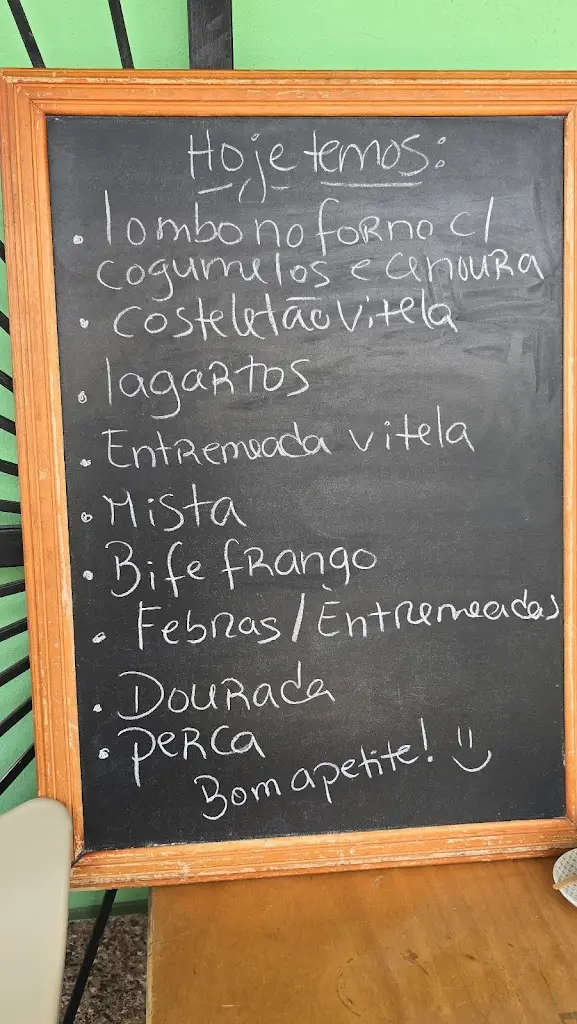 Hoje temos:
. lombo no forno c/
cogumelos e cenoura
. costeletão vitela
. lagartos
. Entremeada vitela
. Mista
. Bife frango
. Febras / Entremeadas
. Dourada
. perca
Bom apetite!